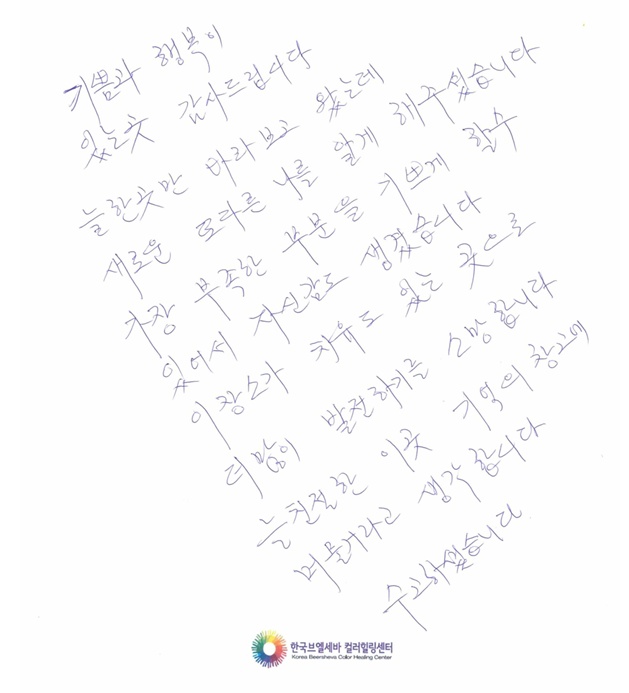 기쁨과 행복이
있는곳 감사드립니다
늘한곳만 바라보고 왔는데
새로운 또다른 나를 알게 해주셨습니다
가장 부족한 부분을 기쁘게 할수
있어서 자신감도 생겼습니다
이장소가 치유도 있는 곳으로
더많이 발전하기를 소망합니다
늘친절한 이곳 기억의 창고에
머물거라고 생각합니다
수고하셨습니다
한국브엘세바 컬러힐링센터
Korea Beersheva Color Healing Center